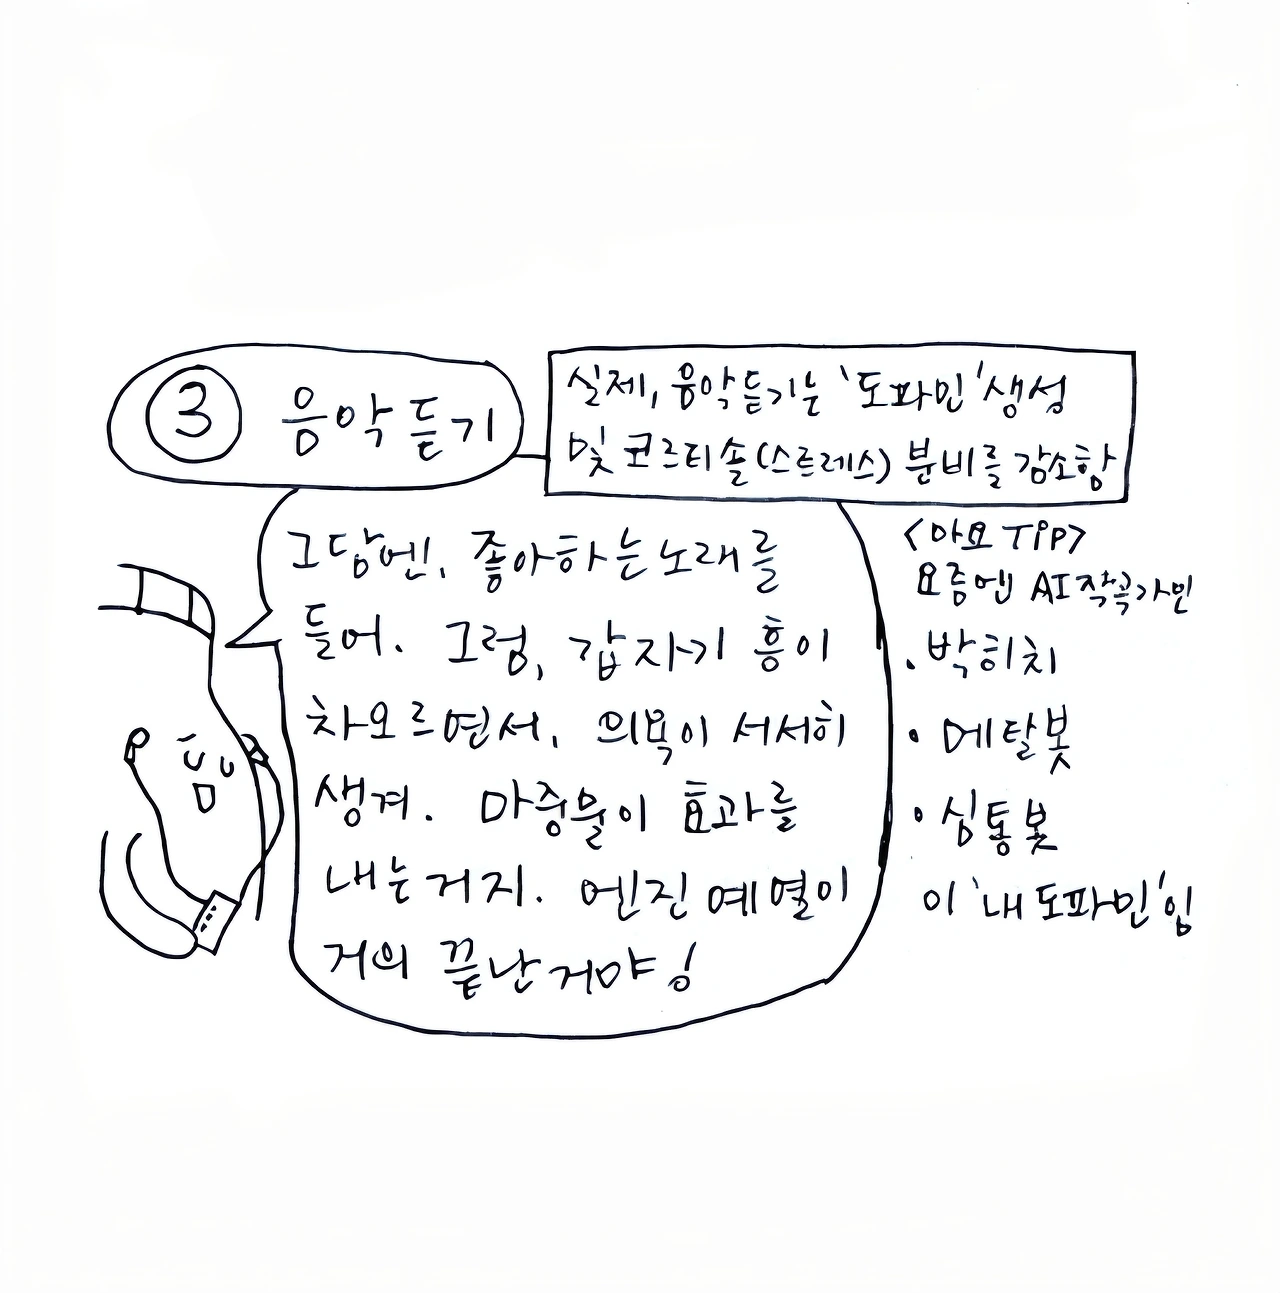 ③ 음악듣기
실제, 음악듣기는 '도파민' 생성
및 코르티솔(스트레스) 분비를 감소함
그담엔, 좋아하는 노래를
들어. 그럼, 갑자기 흥이
차오르면서, 의욕이 서서히
생겨. 마중물이 효과를
내는거지. 엔진 예열이
거의 끝난거야!
<마요 TIP>
요즘엔 AI작곡가인
• 박히치
• 메탈봇
• 심통봇
이 '내 도파민'임